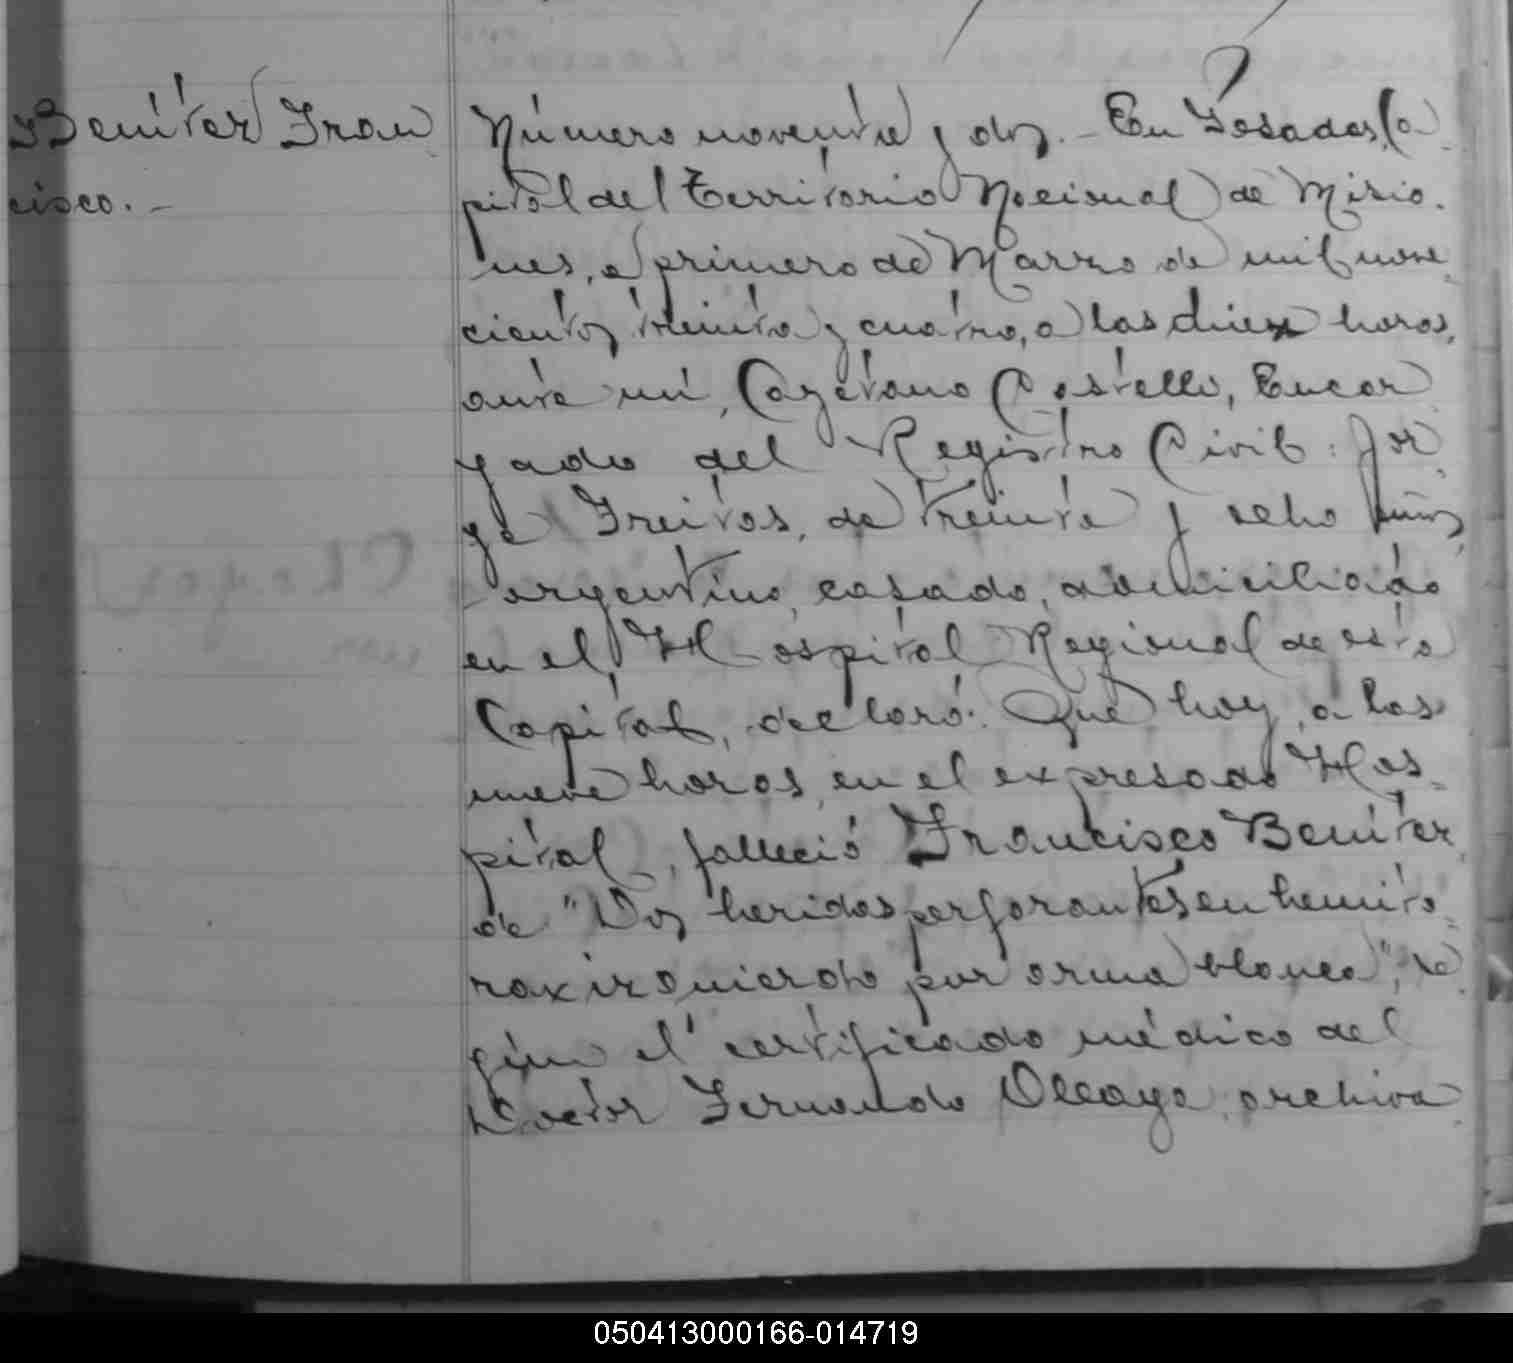 Benítez Fran
cisco.-
Número noventa y dos.- En Posadas, Ca
pital del Territorio Nacional de Misio-
nes, a primero de Marzo de mil nove
cientos treinta y cuatro, a las diez horas,
ante mí, Cayetano Castelli, Encar
gado del Registro Civil: Jor
ge Freitas, de treinta y ocho años,
argentino, casado, domiciliado
en el Hospital Regional de esta
Capital, declaró: Que hoy, a las
nueve horas, en el expresado Hos-
pital, falleció Francisco Benítez
de "Dos heridas perforantes en hemito-
rax izquierdo por arma blanca", se
gún el certificado médico del
Doctor Fernando
archiva
050413000166-014719